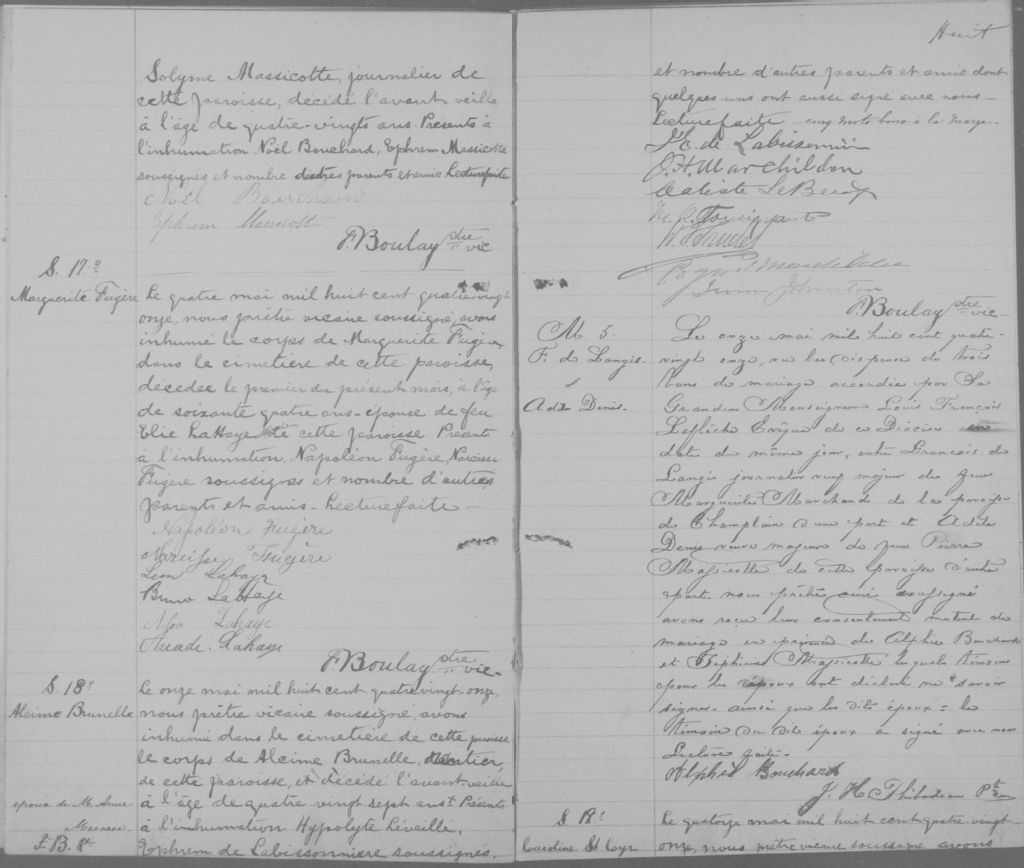 Solyme Massicotte, journalier de
cette paroisse, décédé l'avant veille
à l'âge de quatre-vingts ans. Présents à
l'inhumation Noël Bouchard, Ephrem Massicotte
soussignés et nombre d'autres parents et amis. Lecture faite
Noël Bouchard
Ephrem Massicotte
F. Boulay ptre vic
S. 17º
Marguerite Fugère
Le quatre mai mil huit cent quatre vingt
onze, nous prêtre vicaire soussigné, avons
inhumé le corps de Marguerite Fugère,
dans le cimetière de cette paroisse,
décédée le premier du présent mois, à l'âge
de soixante quatre ans - épouse de feu
Elie LaHaye de cette paroisse Présents
à l'inhumation, Napoléon Fugère, Narcisse
Fugère soussignés et nombre d'autres
parents et amis - Lecture faite -
Napoléon Fugère
Narcisse Fugère
Léon Lahaye
Bruno LaHaye
Lahaye
Lahaye
F. Boulay ptre vic-
S. 18º
Alcime Brunelle
époux de M. Anne
F. B. Ptr
Le onze mai mil huit cent quatre vingt-onze,
nous prêtre vicaire soussigné, avons
inhumé dans le cimetière de cette paroisse
le corps de Alcime Brunelle, rentier,
de cette paroisse, et décédé l'avant veille
à l'âge de quatre vingt sept ans. Présents
à l'inhumation Hypolyte Léveillé,
Ephrem de Labissonnière soussignés,
Huit
et nombre d'autres parents et amis dont
quelques-uns ont aussi signé avec nous -
Lecture faite - cinq mots bons à la marge -
de Labissonnière
O. H. Marchildon
Calixte LeBeuf
Tousignant
Johnston
F. Boulay ptre vic-
M 5.
F. de Langis.
&
Ade Denis.
Le onze mai mil huit cent quatre-
vingt onze, vu la dispense de trois
bans de mariage accordée par Sa
Grandeur Monseigneur Louis François
Laflèche Évêque de ce Diocèse en
date du même jour, entre François de
Langis journalier veuf majeur de feue
Marguerite Marchand de la paroisse
de Champlain d'une part et Adée
Denis veuve majeure de feu Pierre
Massicotte de cette paroisse d'autre
part, nous prêtre curé soussigné
avons reçu leur consentement mutuel de
mariage en présence de Alphée Bouchard
et Zéphirin Massicotte lesquels témoins
pour les époux ont déclaré ne savoir
signer - ainsi que les dits époux = le
témoin du dit époux a signé avec nous
Lecture faite -
Alphé Bouchard
J. H. Thibodeau Ptre
S. 19º
Caroline St Cyr
Le quatorze mai mil huit cent quatre vingt-
onze, nous prêtre vicaire soussigné avons